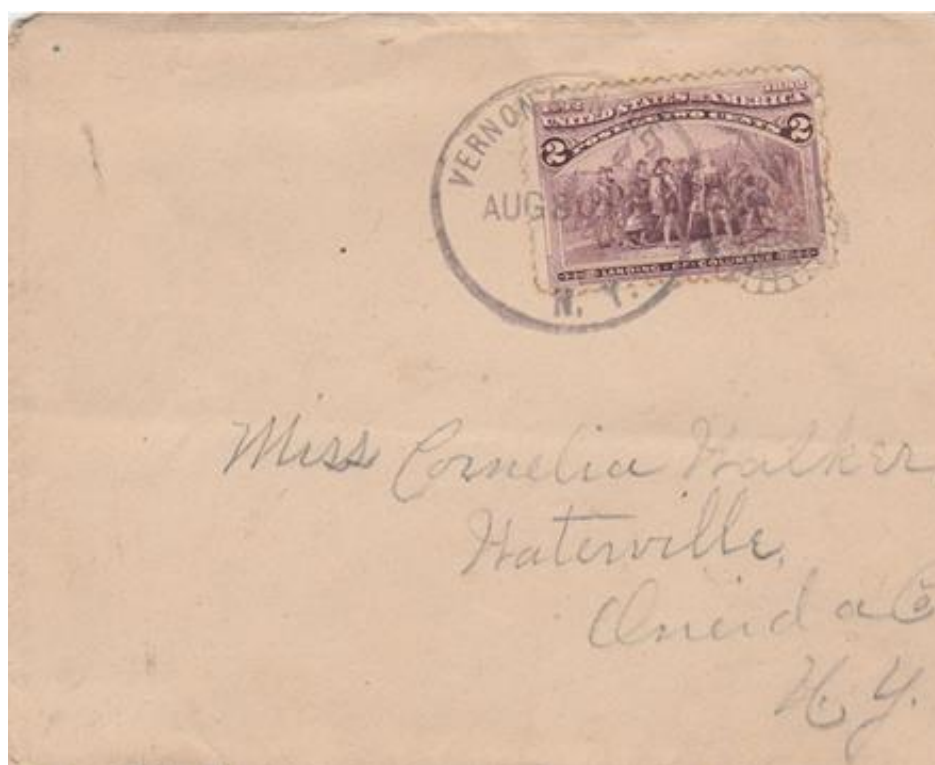 VERNON
AUG 30
N. Y.
1492 1892
UNITED STATES OF AMERICA
POSTAGE TWO CENTS
2 2
LANDING OF COLUMBUS
Miss Cornelia Walker
Waterville,
Oneida C
N. Y.